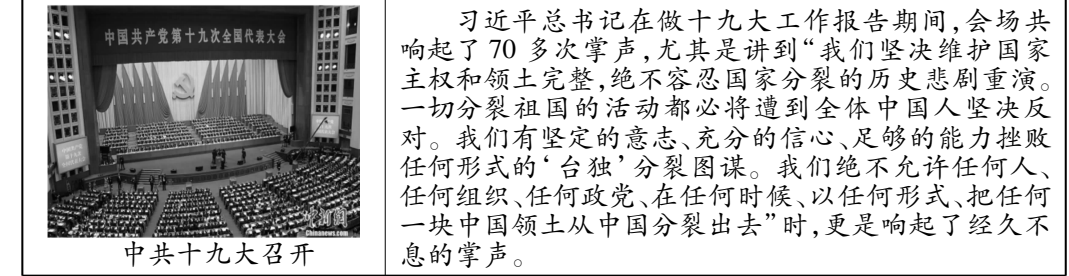 中国共产党第十九次全国代表大会
中新网
Chinanews.com
中共十九大召开
习近平总书记在做十九大工作报告期间,会场共
响起了 70 多次掌声,尤其是讲到“我们坚决维护国家
主权和领土完整,绝不容忍国家分裂的历史悲剧重演。
一切分裂祖国的活动都必将遭到全体中国人坚决反
对。我们有坚定的意志、充分的信心、足够的能力挫败
任何形式的‘台独’分裂图谋。我们绝不允许任何人、
任何组织、任何政党、在任何时候、以任何形式、把任何
一块中国领土从中国分裂出去”时,更是响起了经久不
息的掌声。